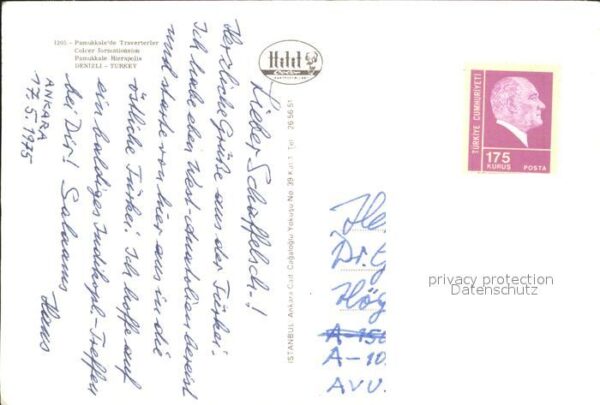 1205 - Pamukkale'de Travertenler
Calcer formationson
Pamukkale Hierapolis
DENIZLI - TURKEY
ANKARA
17.5.1975
Lieber Schaffelsch-!
Herzliche Grüße aus der Türkei!
Ich habe eben West-Anatolien bereist
und starte von hier aus in die
östliche Türkei. Ich hoffe auf
ein baldiges -Treffen
bei Dir! Salaams
Hans
Hdd
ISTANBUL: Ankara Cad. Cağaloğlu Yokuşu No. 39 Kat.1 Tel. : 26 56 51
TÜRKİYE CUMHURİYETİ
175
KURUŞ POSTA
He
Dr. G
Hög
A-150
A-10
AVU.
privacy protection
Datenschutz